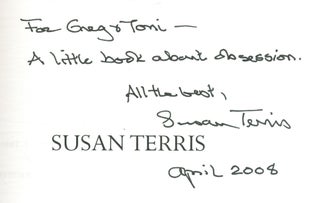 For Greg & Toni —
A little book about obsession.
All the best,
Susan Terris
SUSAN TERRIS
April 2008